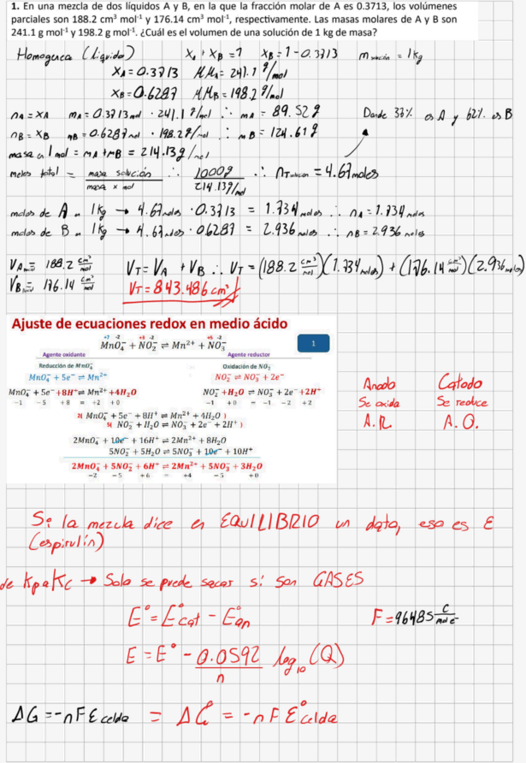 1. En una mezcla de dos líquidos A y B, en la que la fracción molar de A es 0.3713, los volúmenes
parciales son 188.2 cm³ mol⁻¹ y 176.14 cm³ mol⁻¹, respectivamente. Las masas molares de A y B son
241.1 g mol⁻¹ y 198.2 g mol⁻¹. ¿Cuál es el volumen de una solución de 1 kg de masa?
Homogenea (Liquida) X_A + X_B = 1 X_B = 1 - 0.3713 = 1kg
X_A = 0.3713 M_A = 241.1 g/mol
X_B = 0.6287 M_B = 198.2 g/mol
n_A = X_A m_A = 0.3713 mol · 241.1 g/mol ∴ m_A = 89.52 g Donde 38% es A y 62% es B
n_B = X_B m_B = 0.6287 mol · 198.2 g/mol ∴ m_B = 124.61 g
masa a 1 mol = m_A + m_B = 214.13 g/mol
moles total = masa solución / masa x mol ∴ 1000g / 214.13 g/mol ∴ = 4.67 moles
moles de A en 1kg → 4.67 moles · 0.3713 = 1.734 moles ∴ n_A = 1.734 moles
moles de B en 1kg → 4.67 moles · 0.6287 = 2.936 moles ∴ n_B = 2.936 moles
V_A = 188.2 cm³/mol V_T = V_A + V_B ∴ V_T = (188.2 cm³/mol)(1.734 moles) + (176.14 cm³/mol)(2.936 moles)
V_B = 176.14 cm³/mol V_T = 843.486 cm³
Ajuste de ecuaciones redox en medio ácido
+7 -2 +3 -2 +5 -2
MnO₄⁻ + NO₂⁻ ⇌ Mn²⁺ + NO₃⁻ 1
Agente oxidante Agente reductor
Reducción de MnO₄⁻ Oxidación de NO₂⁻
MnO₄⁻ + 5e⁻ ⇌ Mn²⁺ NO₂⁻ ⇌ NO₃⁻ + 2e⁻
MnO₄⁻ + 5e⁻ + 8H⁺ ⇌ Mn²⁺ + 4H₂O NO₂⁻ + H₂O ⇌ NO₃⁻ + 2e⁻ + 2H⁺
-1 -5 +8 = +2 +0 -1 +0 = -1 -2 +2
2( MnO₄⁻ + 5e⁻ + 8H⁺ ⇌ Mn²⁺ + 4H₂O )
5( NO₂⁻ + H₂O ⇌ NO₃⁻ + 2e⁻ + 2H⁺ )
2MnO₄⁻ + 10e⁻ + 16H⁺ ⇌ 2Mn²⁺ + 8H₂O
5NO₂⁻ + 5H₂O ⇌ 5NO₃⁻ + 10e⁻ + 10H⁺
2MnO₄⁻ + 5NO₂⁻ + 6H⁺ ⇌ 2Mn²⁺ + 5NO₃⁻ + 3H₂O
-2 -5 +6 = +4 -5 +0
Anodo Catodo
Se oxida Se reduce
A.R. A.O.
Si la mezcla dice en EQUILIBRIO un dato, eso es E
(espirulín)
de Kp a Kc → Solo se puede sacar si son GASES
E° = E°cat - E°an F = 96485 C/mol e⁻
E = E° - 0.0592/n log₁₀ (Q)
ΔG = -nFE celda = ΔG° = -nFE° celda